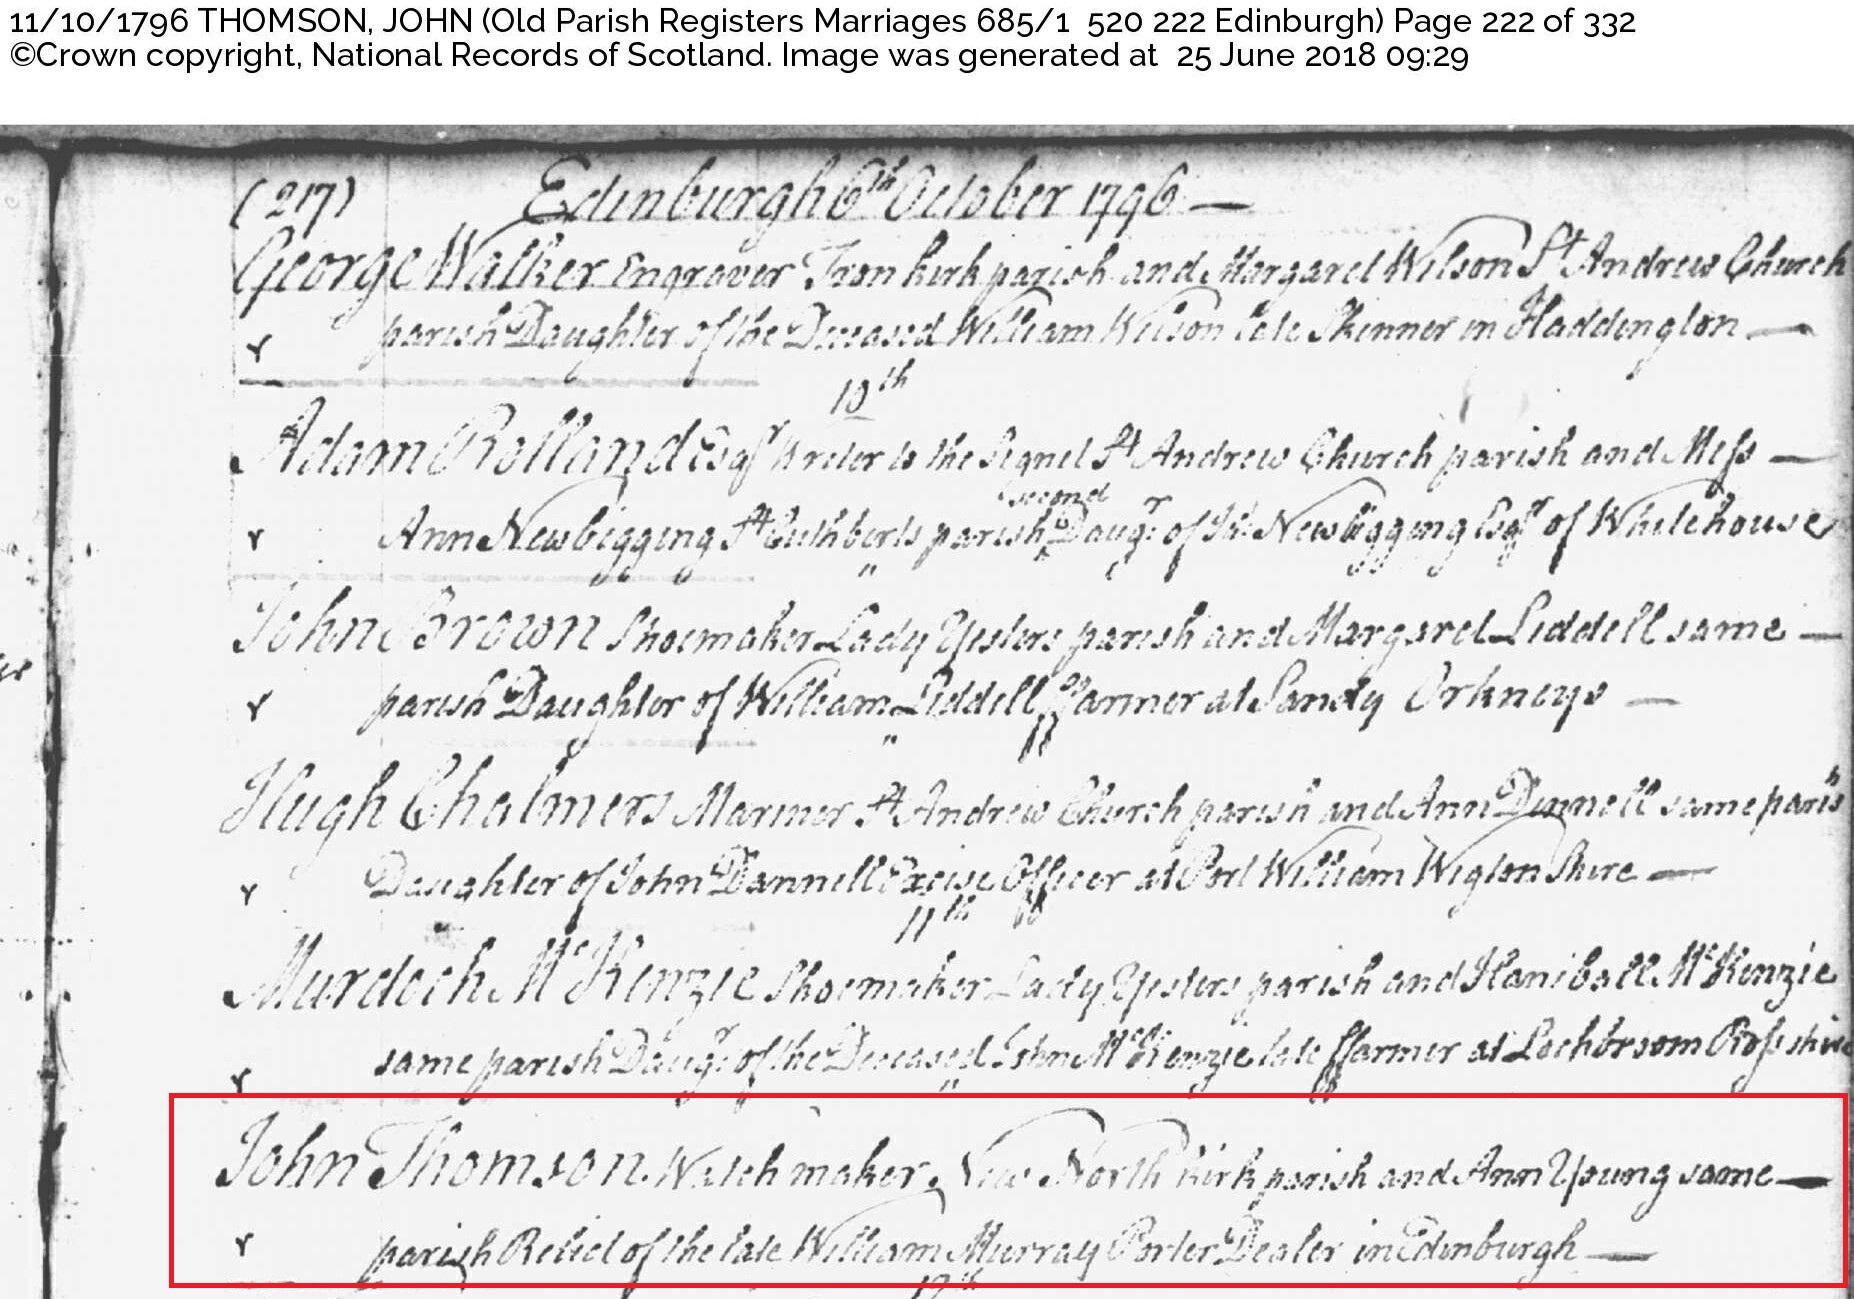 11/10/1796 THOMSON, JOHN (Old Parish Registers Marriages 685/1 520 222 Edinburgh) Page 222 of 332
©Crown copyright, National Records of Scotland. Image was generated at 25 June 2018 09:29
(217) Edinburgh 6th October 1796 —
George Walker Engraver Tron kirk parish and Margaret Wilson St Andrew Church
parish Daughter of the Deceased William Wilson late Skinner in Haddington —
10th
Adam Rolland Esqr Writer to the Signet St Andrew Church parish and Miss —
Ann Newbigging St Cuthberts parish second Daugr of Jno Newbigging Esqr of Whitehouse
John Brown Shoemaker Lady Yesters parish and Margaret Liddell same —
parish Daughter of William Liddell ffarmer at Sandy Orkneys —
Hugh Chalmers Mariner St Andrew Church parish and Ann Dannell same parish
Daughter of John Dannell Excise Officer at Port William Wigton Shire —
11th
Murdoch McKenzie Shoemaker Lady Yesters parish and Haniball McKenzie
same parish Daugr of the Deceased John McKenzie late ffarmer at Lochbroom Ross shire
John Thomson Watch maker New North kirk parish and Ann Young same —
parish Relict of the late William Murray Porter Dealer in Edinburgh —